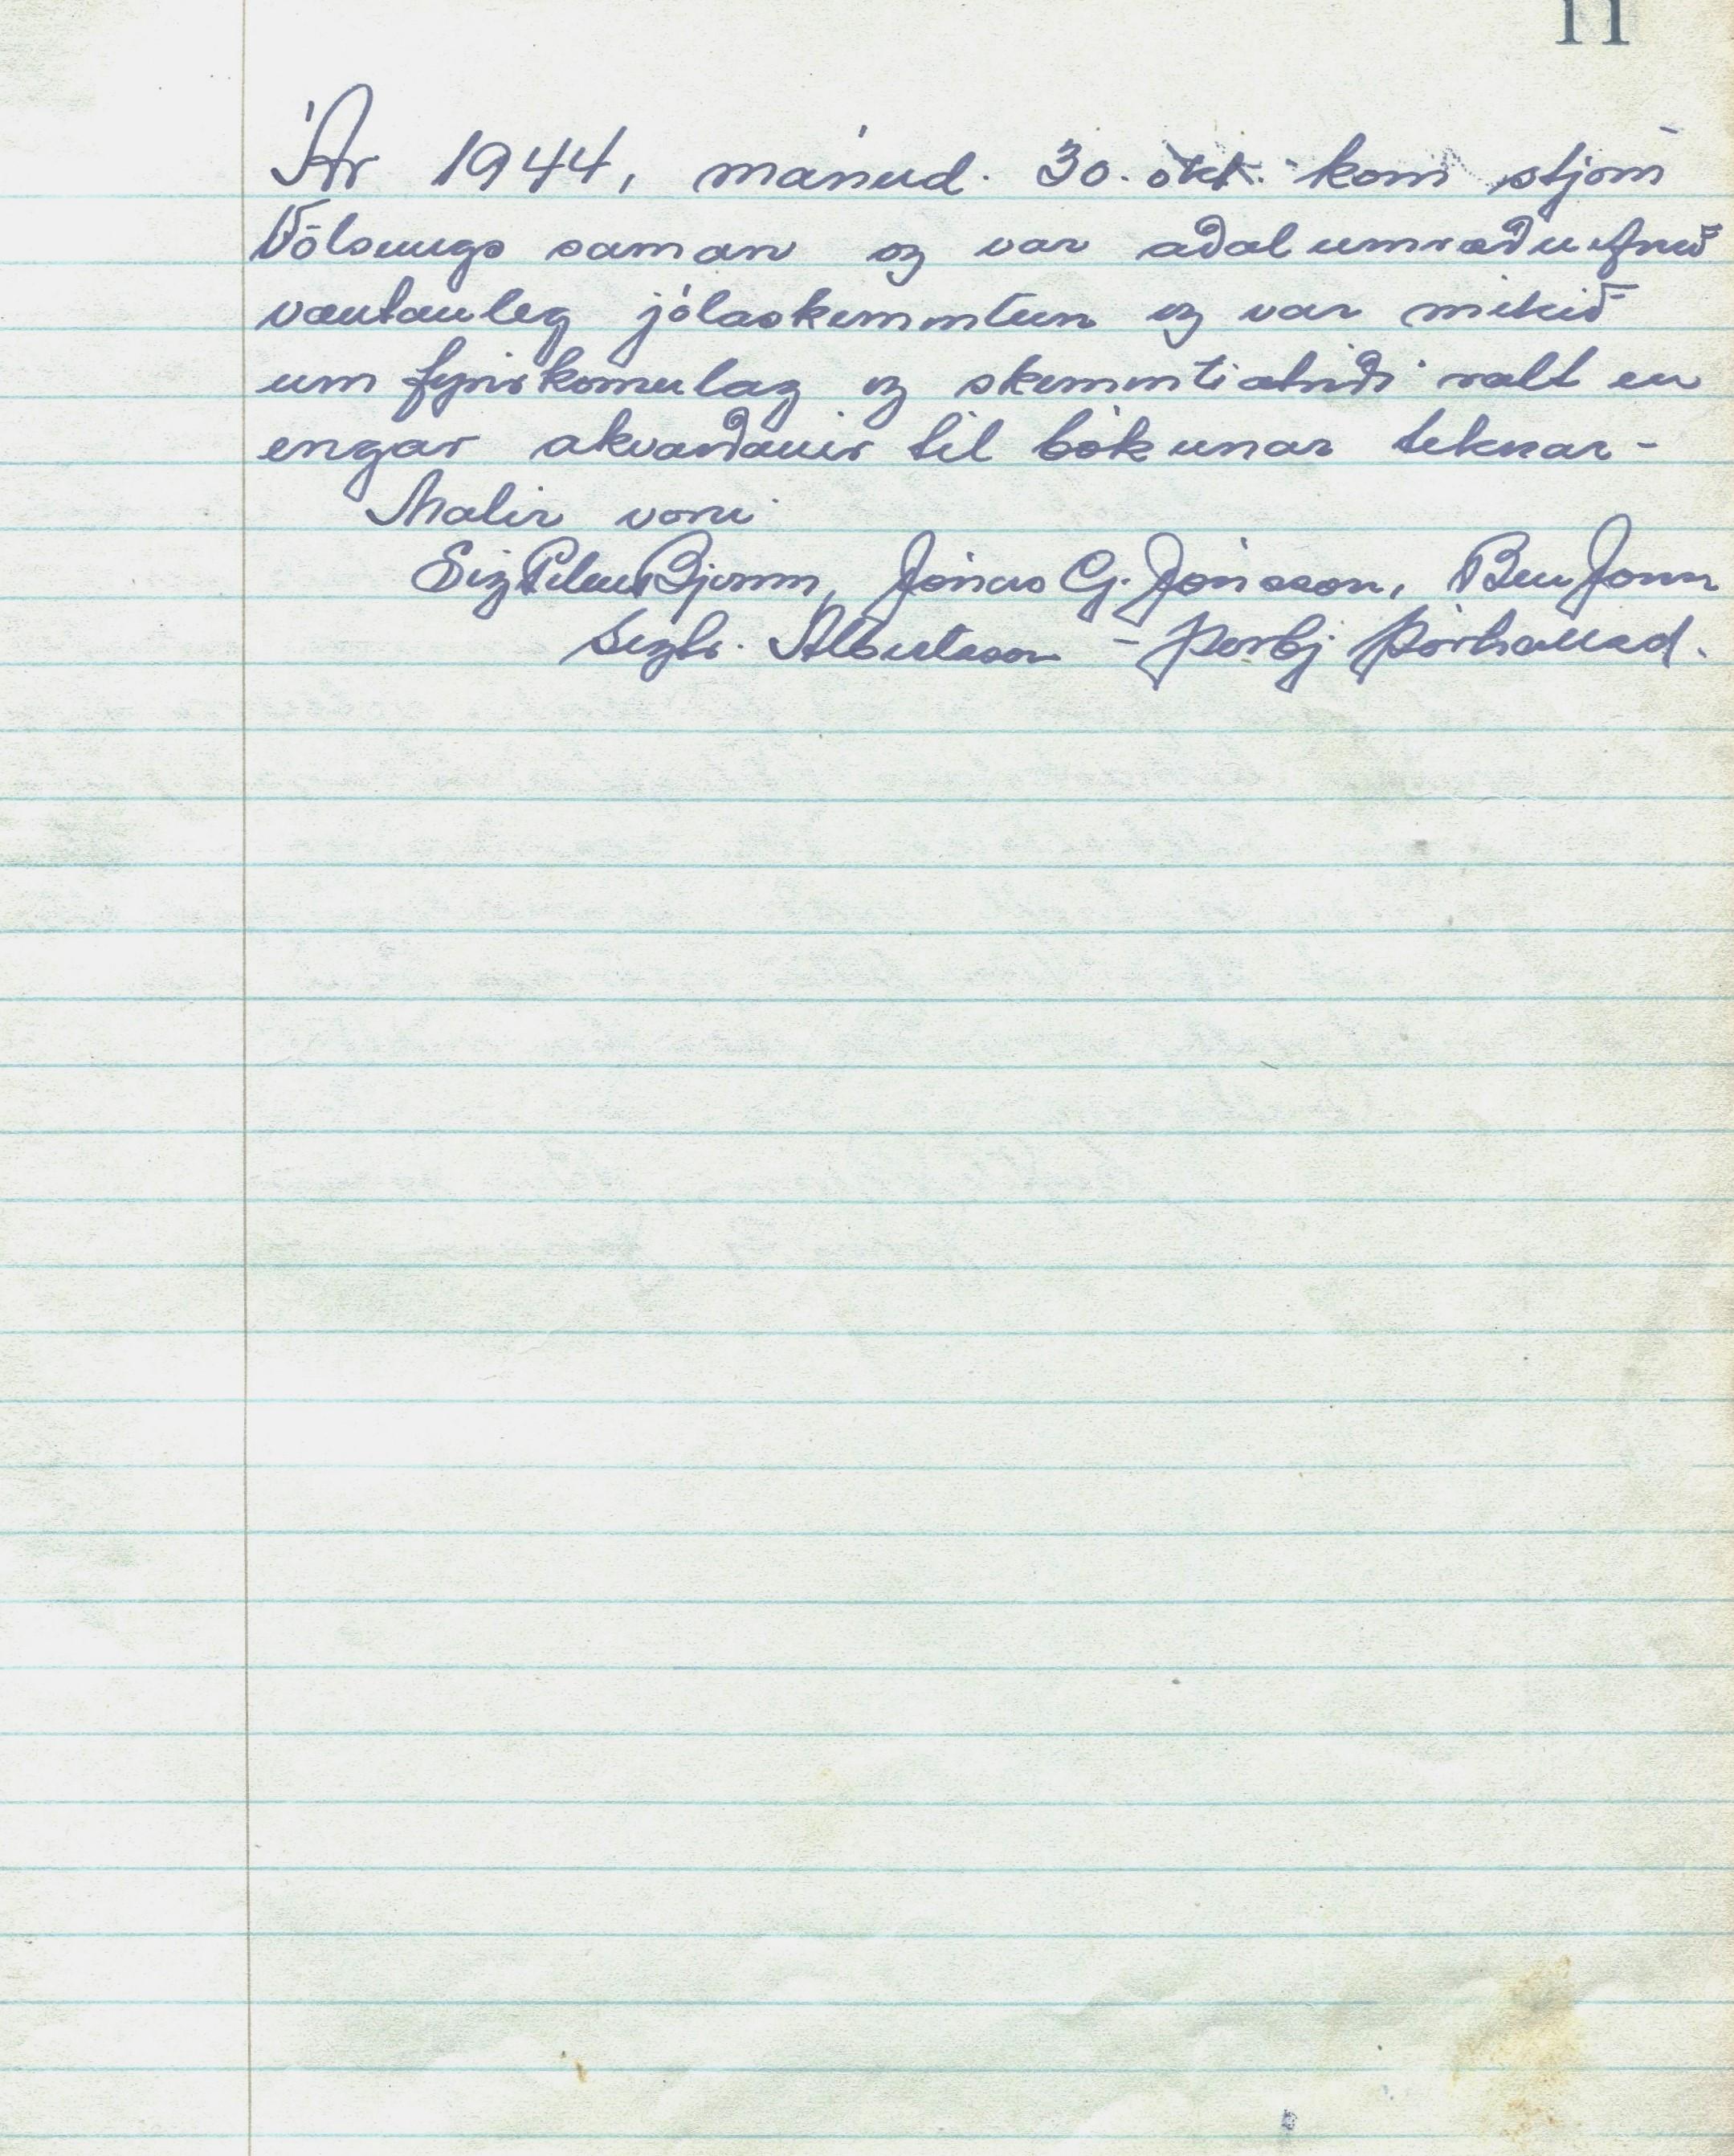 11
Ár 1944, mánud. 30. okt. kom stjórn
Völsungs saman og var aðal umræðuefnið
væntanleg jólaskemmtun og var mikið
um fyrirkomulag og skemmtiatriði rætt en
engar ákvarðanir til bókunar teknar -
Mættir voru
Sig Pétur Björnss, Jónas G. Jónsson, Ben Jónss
Sigtr. Albertsson - Þorbj Þórhallsd.